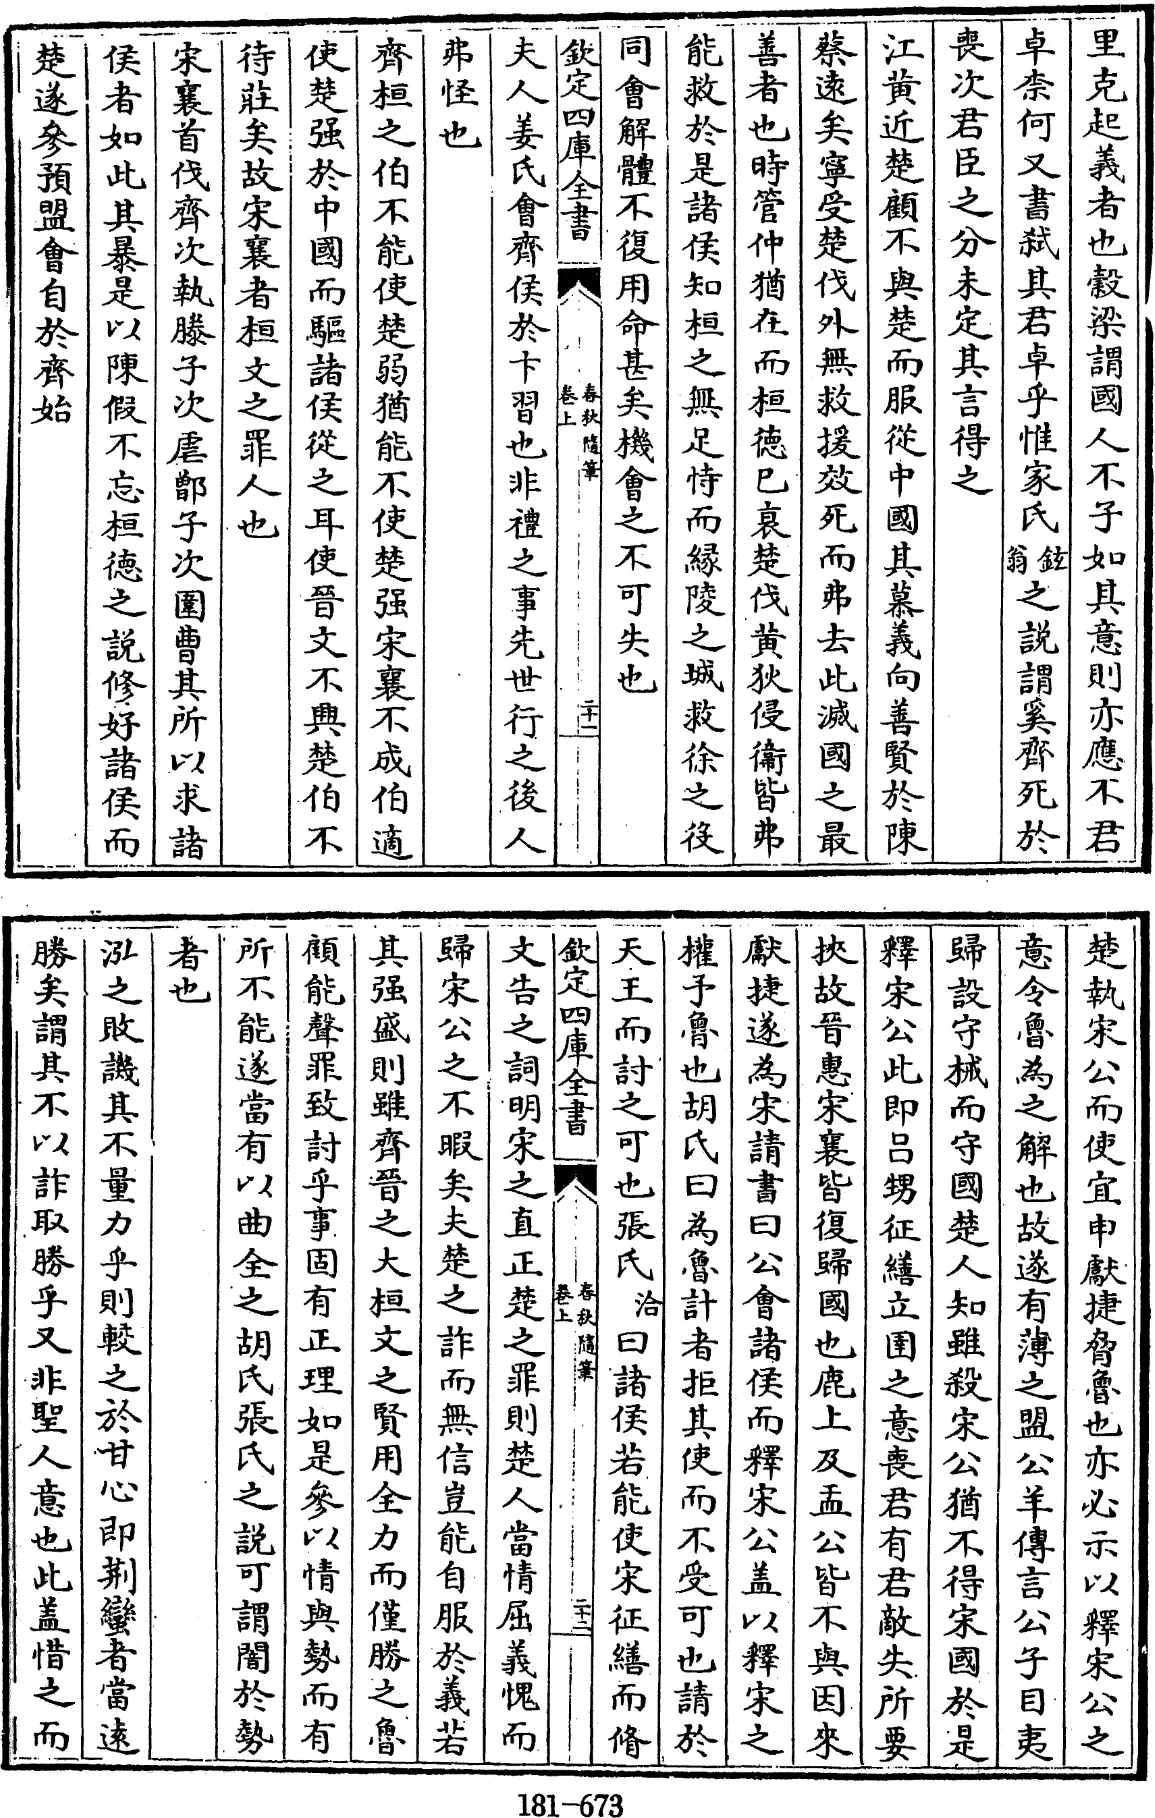 里克起義者也穀梁謂國人不子如其意則亦應不君
卓柰何又書弒其君卓乎惟家氏鉉翁之説謂奚齊死於
喪次君臣之分未定其言得之
江黄近楚顧不與楚而服從中國其慕義向善賢於陳
蔡遠矣寧受楚伐外無救援效死而弗去此滅國之最
善者也時管仲猶在而桓德已衰楚伐黄狄侵衛皆弗
能救於是諸侯知桓之無足恃而縁陵之城救徐之役
同會解體不復用命甚矣機會之不可失也
欽定四庫全書
春秋隨筆
卷上
二十一
夫人姜氏會齊侯於卞習也非禮之事先世行之後人
弗怪也
齊桓之伯不能使楚弱猶能不使楚强宋襄不成伯適
使楚强於中國而驅諸侯從之耳使晉文不興楚伯不
待莊矣故宋襄者桓文之罪人也
宋襄首伐齊次執滕子次虐鄫子次圍曹其所以求諸
侯者如此其暴是以陳假不忘桓徳之説修好諸侯而
楚遂參預盟會自於齊始
楚執宋公而使宜申獻捷脅魯也亦必示以釋宋公之
意令魯為之解也故遂有薄之盟公羊傳言公子目夷
歸設守械而守國楚人知雖殺宋公猶不得宋國於是
釋宋公此即吕甥征繕立圉之意喪君有君敵失所要
挾故晉惠宋襄皆復歸國也鹿上及盂公皆不與因來
獻捷遂為宋請書曰公會諸侯而釋宋公盖以釋宋之
權予魯也胡氏曰為魯計者拒其使而不受可也請於
天王而討之可也張氏洽曰諸侯若能使宋征繕而脩
欽定四庫全書
春秋隨筆
卷上
二十二
文告之詞明宋之直正楚之罪則楚人當情屈義愧而
歸宋公之不暇矣夫楚之詐而無信豈能自服於義若
其强盛則雖齊晉之大桓文之賢用全力而僅勝之魯
顧能聲罪致討乎事固有正理如是參以情與勢而有
所不能遂當有以曲全之胡氏張氏之説可謂闇於勢
者也
泓之敗譏其不量力乎則較之於甘心即荆蠻者當逺
勝矣謂其不以詐取勝乎又非聖人意也此盖惜之而
181-673